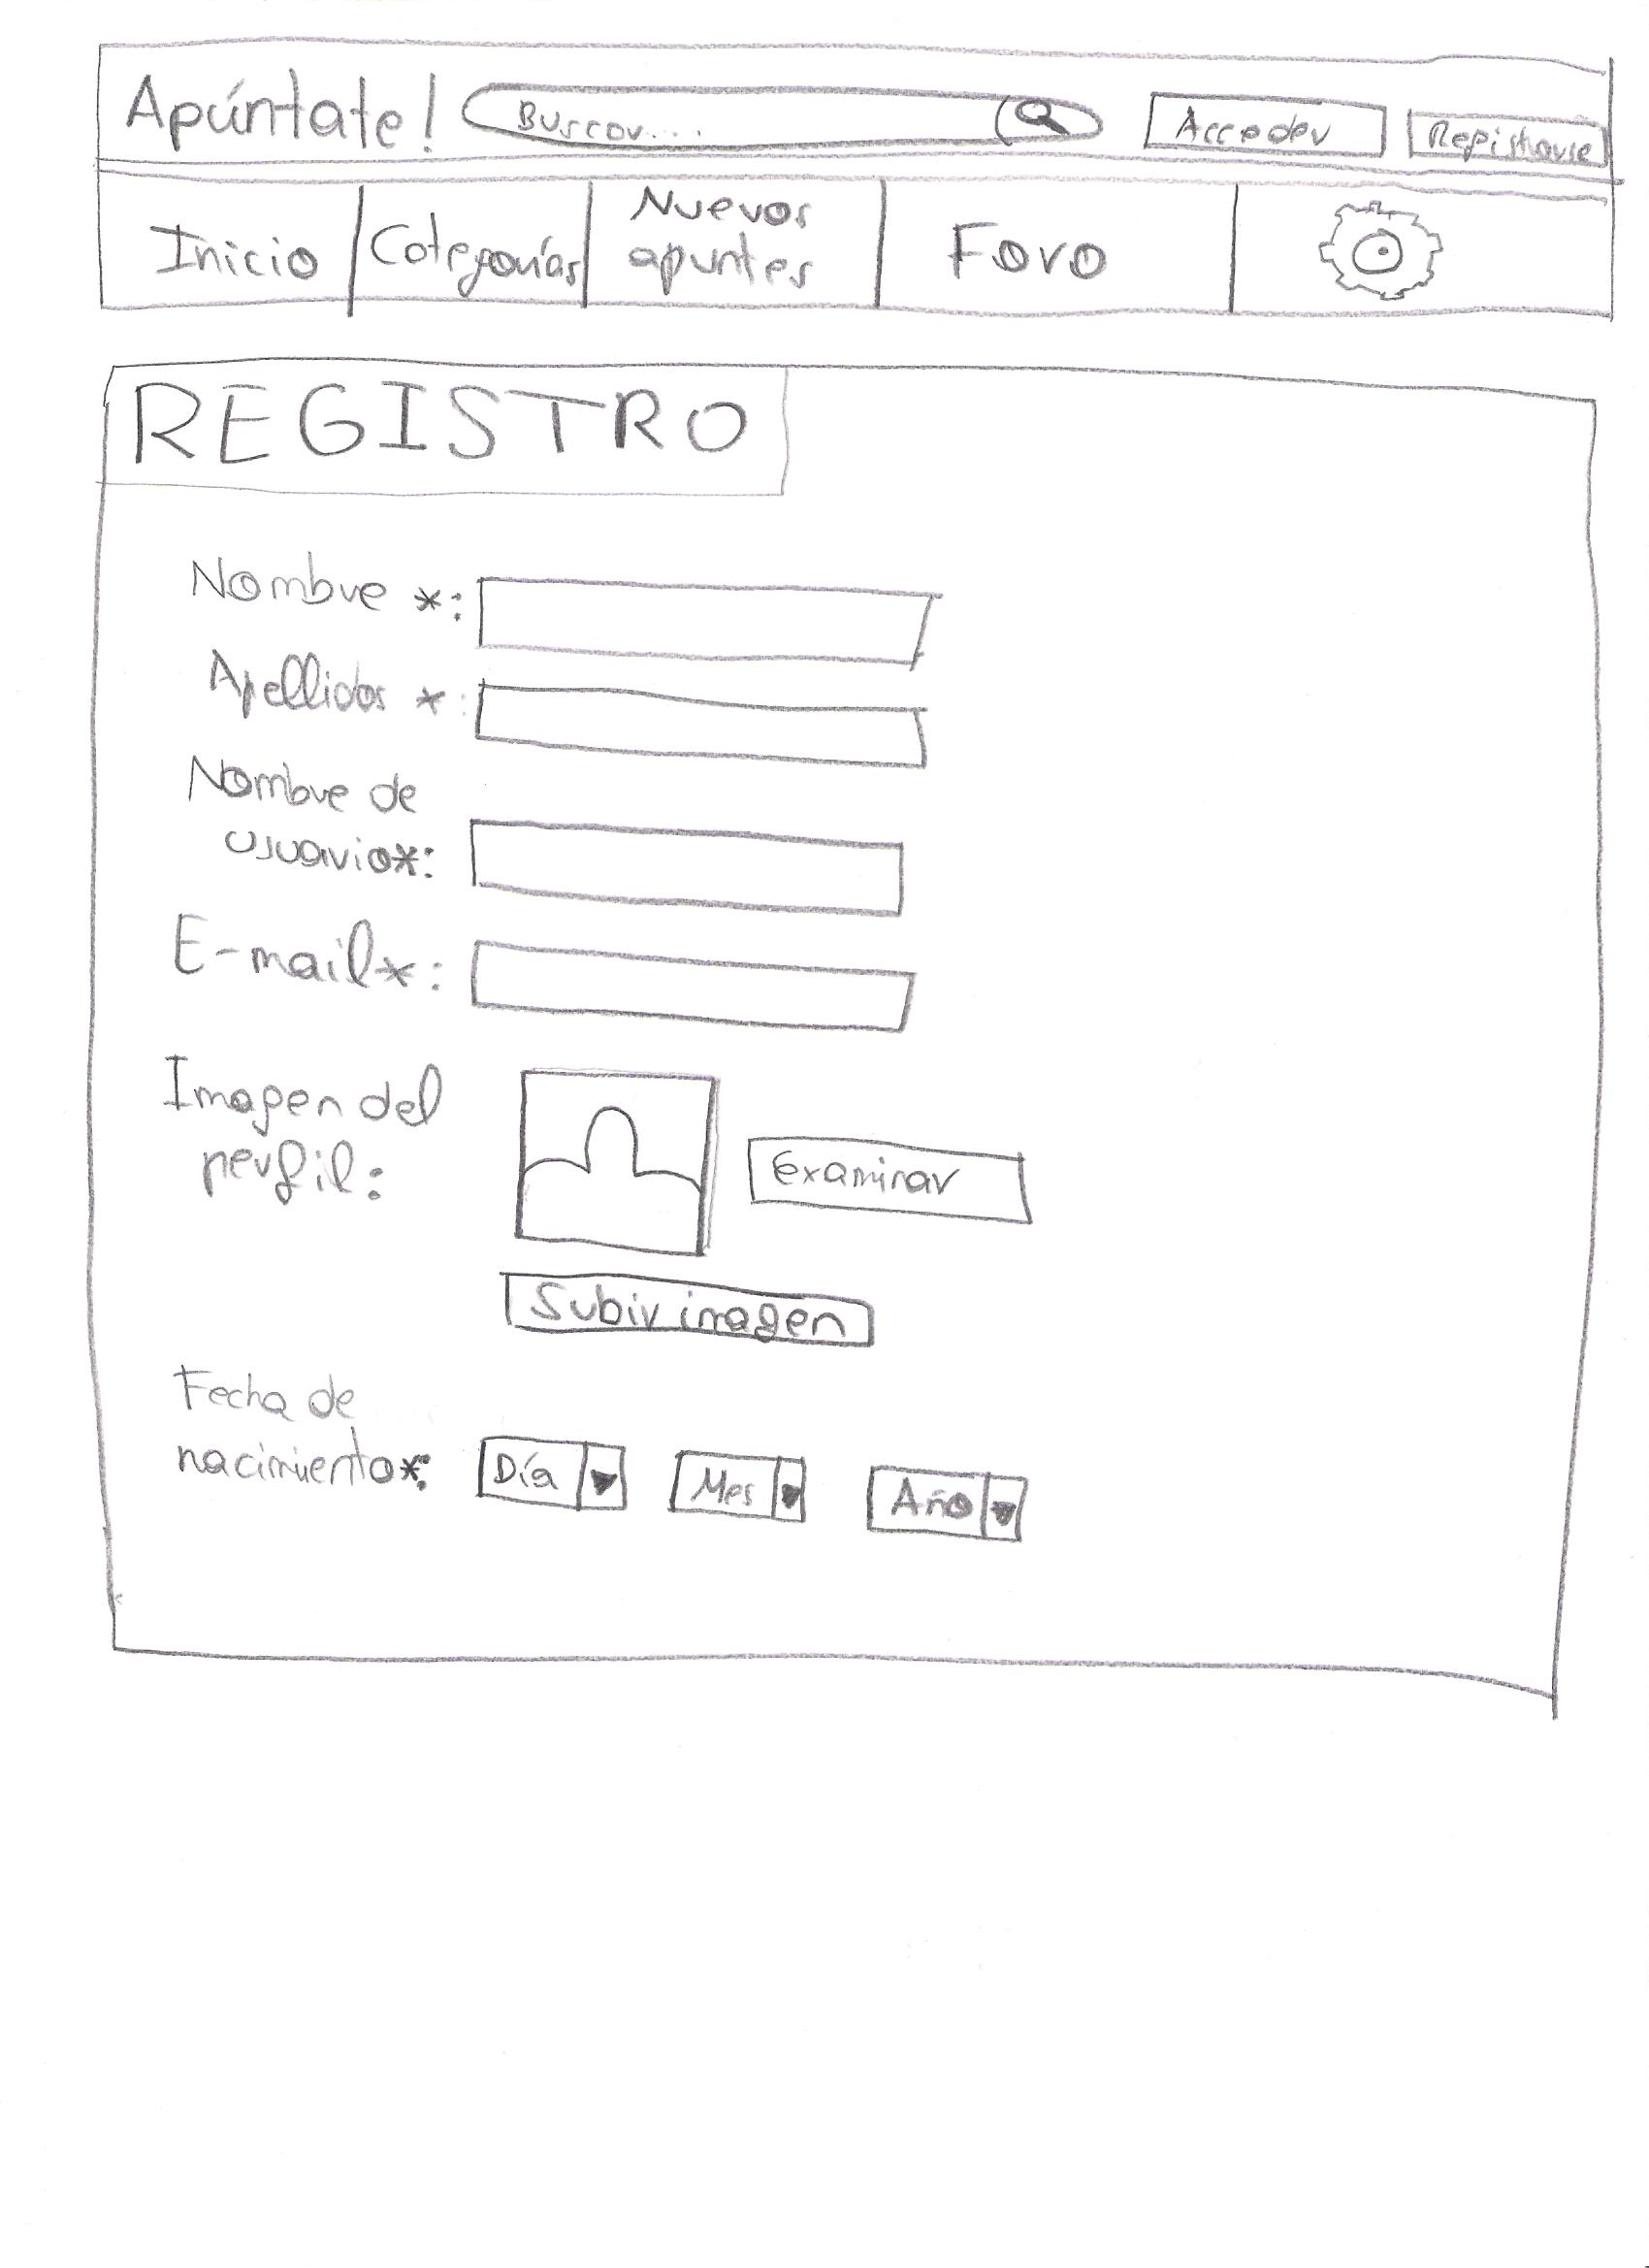 Apúntate!
Buscar....
Acceder
Registrarse
Inicio
Categorías
Nuevos
apuntes
Foro
REGISTRO
Nombre *:
Apellidos *:
Nombre de
usuario*:
E-mail*:
Imagen del
perfil:
Examinar
Subir imagen
Fecha de
nacimiento*:
Día
Mes
Año